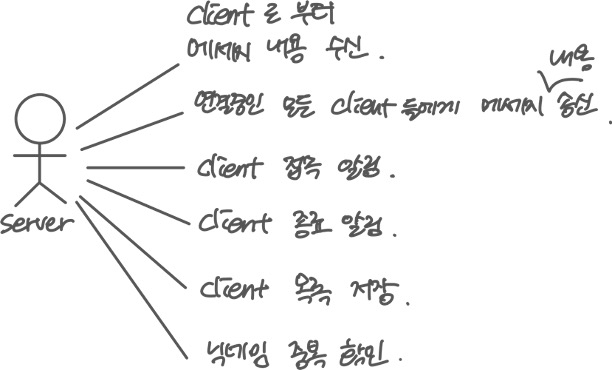 client 로 부터
메세지 내용 수신.
내용
연결중인 모든 client들에게 메세지 송신.
client 접속 알림.
client 종료 알림.
server
client 목록 저장.
닉네임 중복 확인.